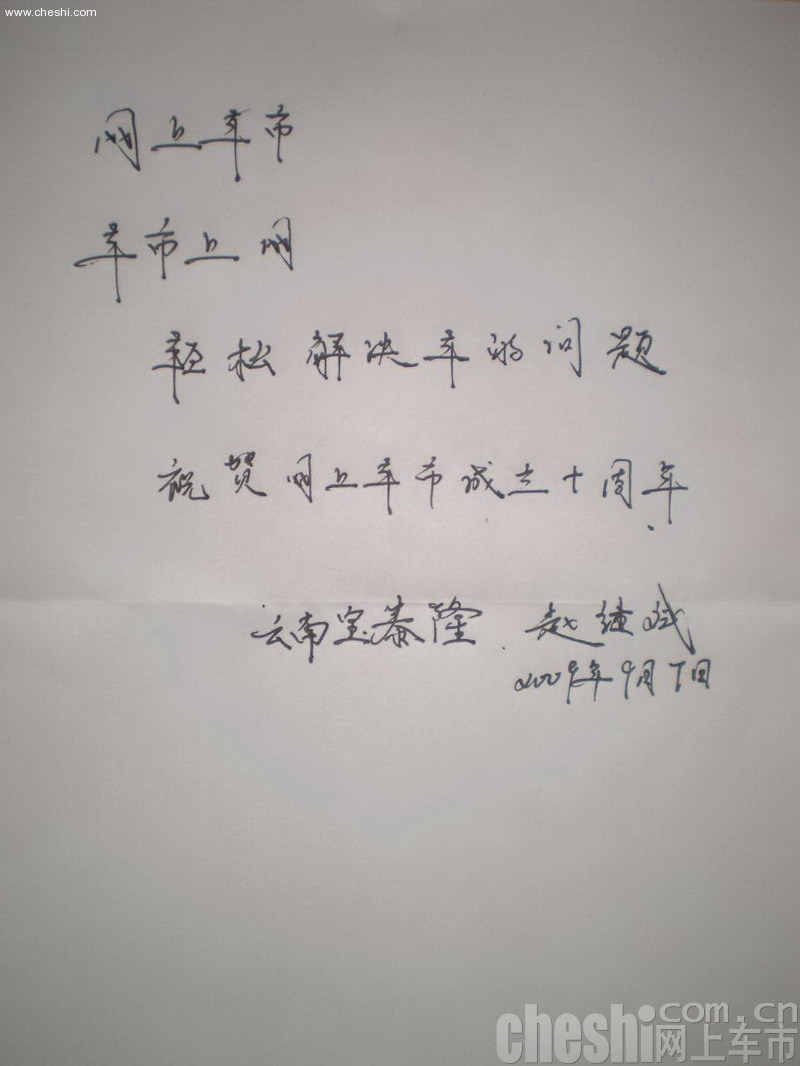 www.cheshi.com
网上车市
车市上网
轻松解决车的问题
祝贺网上车市成立十周年.
云南宝泰隆. 赵继斌
2009年9月7日
cheshi.com.cn
网上车市